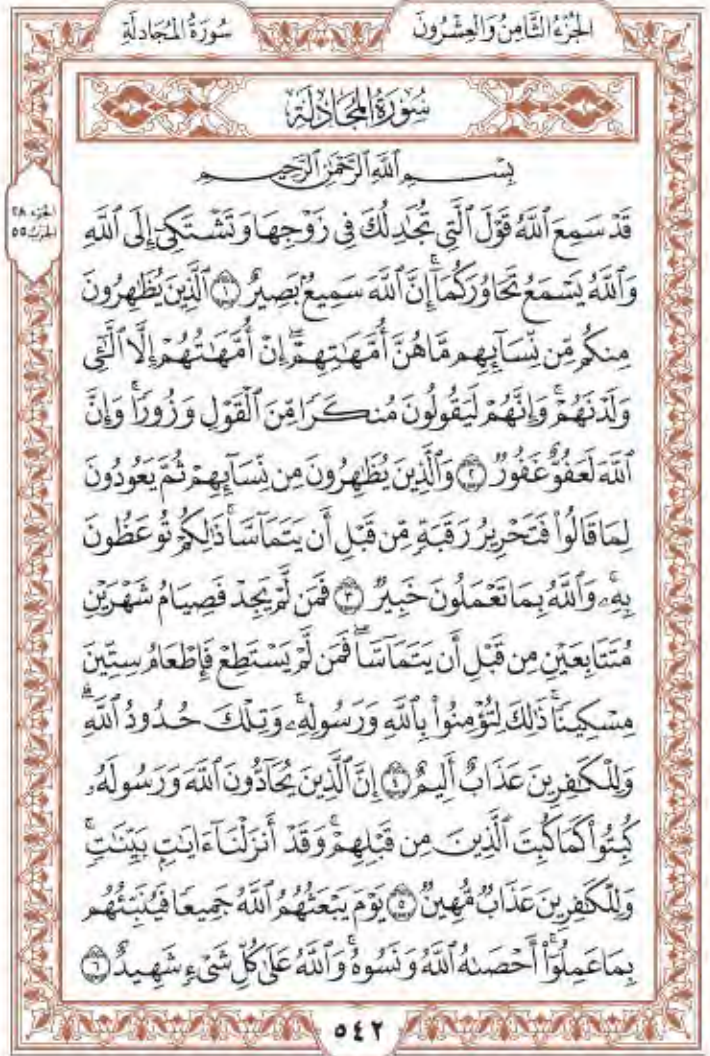 الجُزْءُ الثَّامِنُ وَالعِشْرُونَ
سُورَةُ المُجَادلَةِ
سُورَةُ المُجَادلَةِ
بِسْمِ ٱللَّهِ ٱلرَّحْمَٰنِ ٱلرَّحِيمِ
قَدْ سَمِعَ ٱللَّهُ قَوْلَ ٱلَّتِى تُجَٰدِلُكَ فِى زَوْجِهَا وَتَشْتَكِىٓ إِلَى ٱللَّهِ
وَٱللَّهُ يَسْمَعُ تَحَاوُرَكُمَآ ۚ إِنَّ ٱللَّهَ سَمِيعٌۢ بَصِيرٌ ١ ٱلَّذِينَ يُظَٰهِرُونَ
مِنكُم مِّن نِّسَآئِهِم مَّا هُنَّ أُمَّهَٰتِهِمْ ۖ إِنْ أُمَّهَٰتُهُمْ إِلَّا ٱلَّٰٓـِٔى
وَلَدْنَهُمْ ۚ وَإِنَّهُمْ لَيَقُولُونَ مُنكَرًا مِّنَ ٱلْقَوْلِ وَزُورًا ۚ وَإِنَّ
ٱللَّهَ لَعَفُوٌّ غَفُورٌ ٢ وَٱلَّذِينَ يُظَٰهِرُونَ مِن نِّسَآئِهِمْ ثُمَّ يَعُودُونَ
لِمَا قَالُوا۟ فَتَحْرِيرُ رَقَبَةٍ مِّن قَبْلِ أَن يَتَمَآسَّا ۚ ذَٰلِكُمْ تُوعَظُونَ
بِهِۦ ۚ وَٱللَّهُ بِمَا تَعْمَلُونَ خَبِيرٌ ٣ فَمَن لَّمْ يَجِدْ فَصِيَامُ شَهْرَيْنِ
مُتَتَابِعَيْنِ مِن قَبْلِ أَن يَتَمَآسَّا ۖ فَمَن لَّمْ يَسْتَطِعْ فَإِطْعَامُ سِتِّينَ
مِسْكِينًا ۚ ذَٰلِكَ لِتُؤْمِنُوا۟ بِٱللَّهِ وَرَسُولِهِۦ ۚ وَتِلْكَ حُدُودُ ٱللَّهِ ۗ
وَلِلْكَٰفِرِينَ عَذَابٌ أَلِيمٌ ٤ إِنَّ ٱلَّذِينَ يُحَآدُّونَ ٱللَّهَ وَرَسُولَهُۥ
كُبِتُوا۟ كَمَا كُبِتَ ٱلَّذِينَ مِن قَبْلِهِمْ ۚ وَقَدْ أَنزَلْنَآ ءَايَٰتٍۭ بَيِّنَٰتٍ ۚ
وَلِلْكَٰفِرِينَ عَذَابٌ مُّهِينٌ ٥ يَوْمَ يَبْعَثُهُمُ ٱللَّهُ جَمِيعًا فَيُنَبِّئُهُم
بِمَا عَمِلُوٓا۟ ۚ أَحْصَىٰهُ ٱللَّهُ وَنَسُوهُ ۚ وَٱللَّهُ عَلَىٰ كُلِّ شَىْءٍ شَهِيدٌ ٦
الجزء ٢٨
الحزب ٥٥
٥٤٢